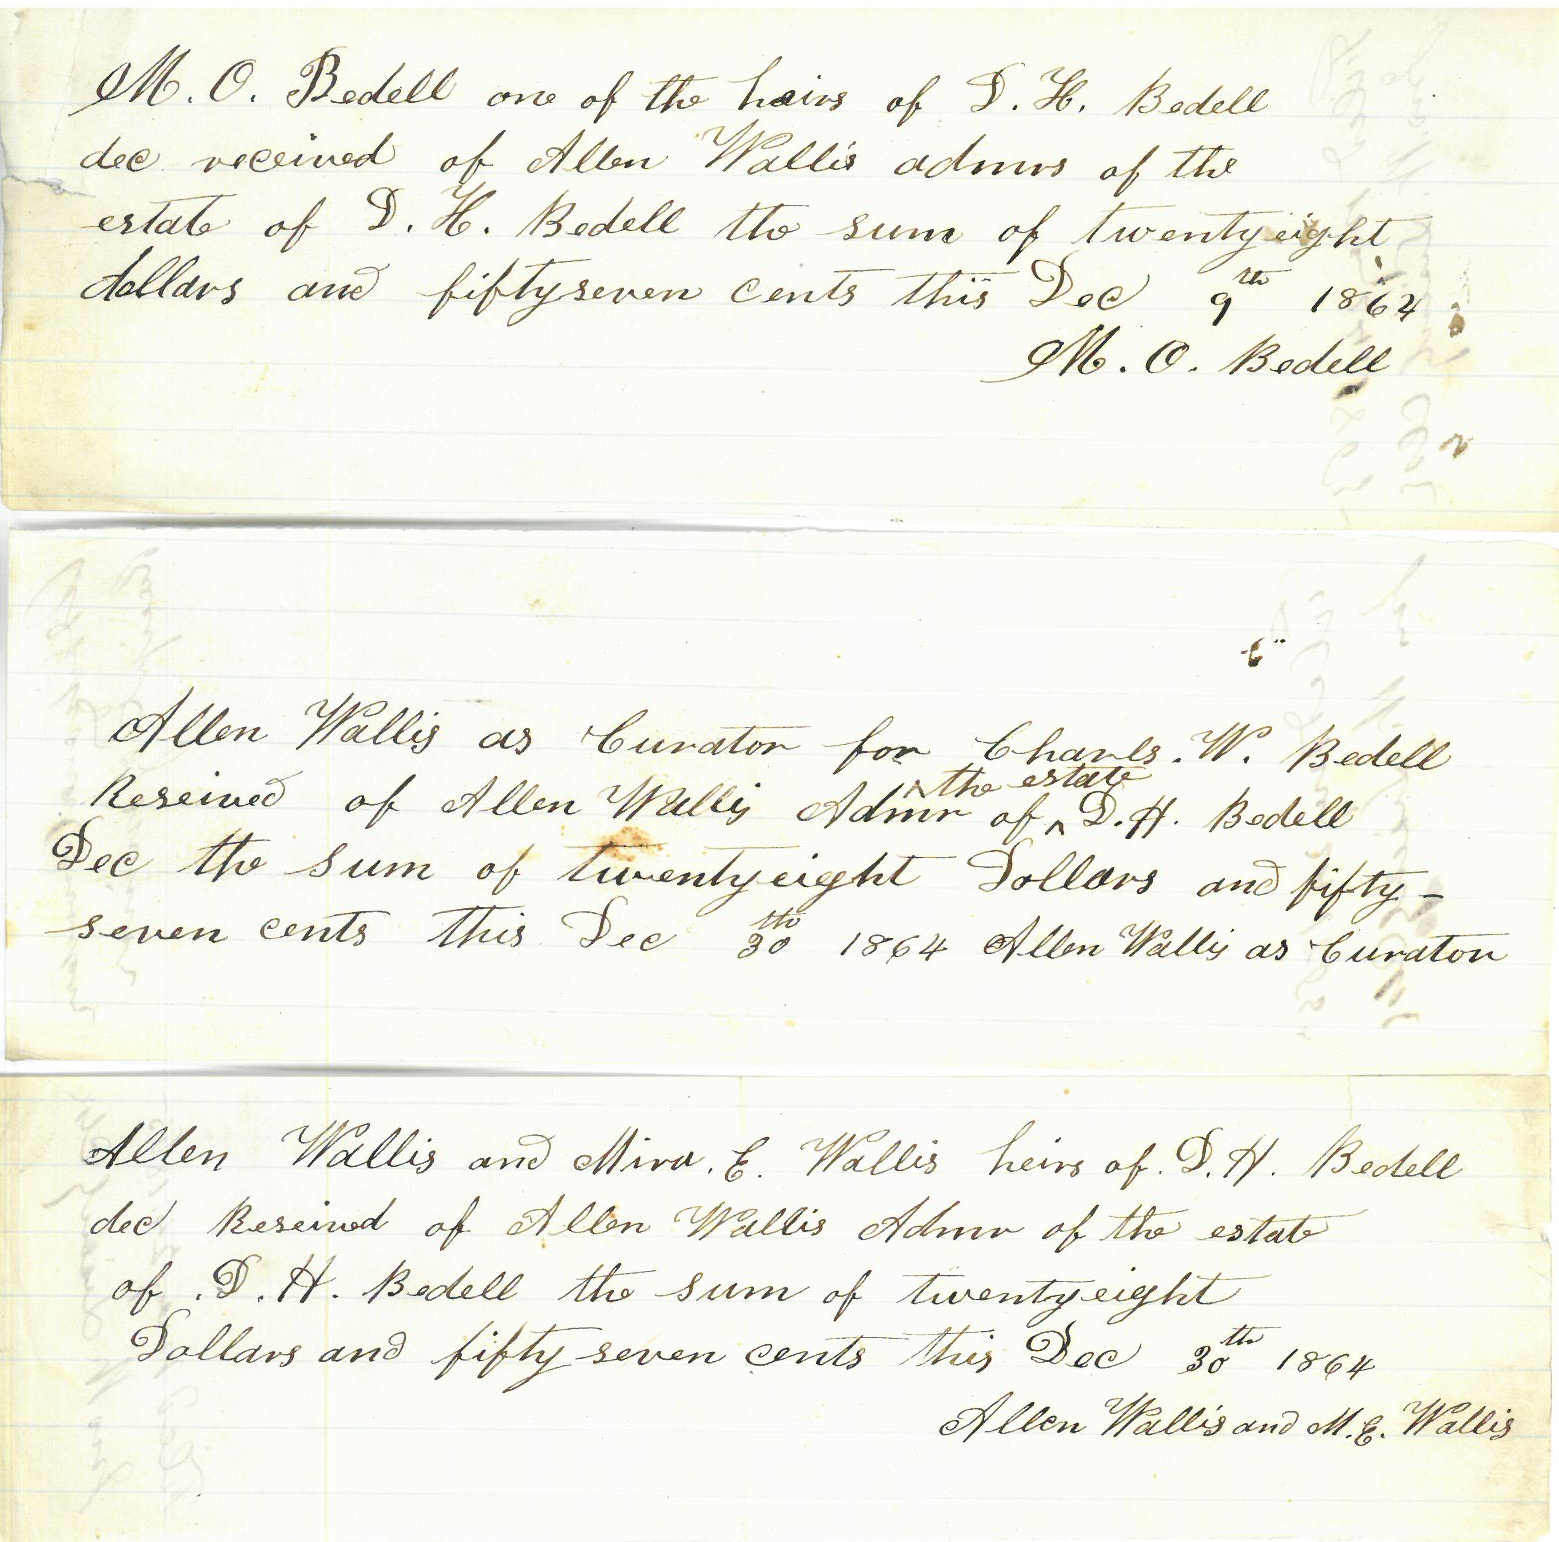 M. O. Bedell one of the heirs of D. H. Bedell
dec received of Allen Wallis admrs of the
estate of D. H. Bedell the sum of twentyeight
dollars and fiftyseven cents this Dec 9th 1864
M. O. Bedell
Allen Wallis as Curator for Charls. W. Bedell
Reseived of Allen Wallis Admr of ^ the estate D. H. Bedell
Dec the sum of twentyeight Dollars and fifty-
seven cents this Dec 30th 1864 Allen Wallis as Curator
Allen Wallis and Mira. E. Wallis heirs of. D. H. Bedell
dec Reseived of Allen Wallis Admr of the estate
of . D. H. Bedell the sum of twentyeight
Dollars and fifty seven cents this Dec 30th 1864
Allen Wallis and M. E. Wallis